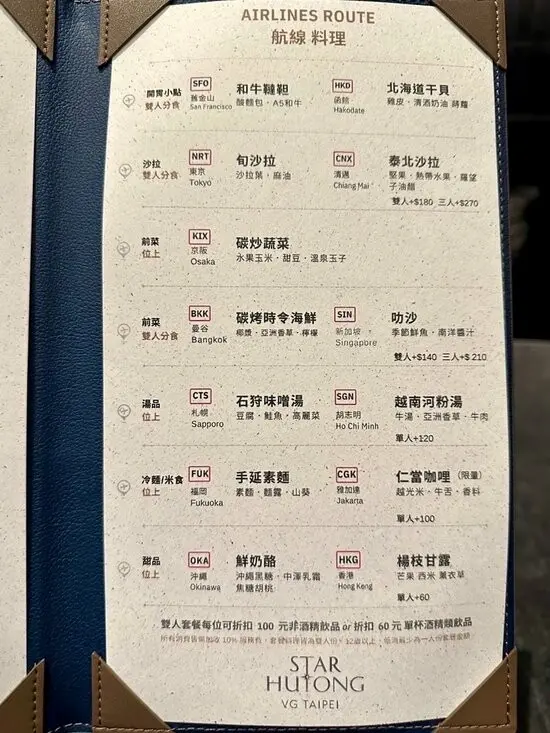 AIRLINES ROUTE
航線 料理
開胃小點 雙人分食
SFO 舊金山 San Francisco
和牛韃靼
酸麵包．A5和牛
HKD 函館 Hakodate
北海道干貝
雞皮．清酒奶油 蒔蘿
沙拉 雙人分食
NRT 東京 Tokyo
旬沙拉
沙拉葉．麻油
CNX 清邁 Chiang Mai
泰北沙拉
堅果．熱帶水果．羅望
子油醋
雙人+$180 三人+$270
前菜 位上
KIX 京阪 Osaka
碳炒蔬菜
水果玉米．甜豆．溫泉玉子
前菜 雙人分食
BKK 曼谷 Bangkok
碳烤時令海鮮
椰漿．亞洲香草．檸檬
SIN 新加坡 Singapore
叻沙
季節鮮魚．南洋醬汁
雙人+$140 三人+$210
湯品 位上
CTS 札幌 Sapporo
石狩味噌湯
豆腐．鮭魚．高麗菜
SGN 胡志明 Ho Chi Minh
越南河粉湯
牛湯．亞洲香草．牛肉
單人+120
冷麵/米食 位上
FUK 福岡 Fukuoka
手延素麵
素麵．麵露．山葵
CGK 雅加達 Jakarta
仁當咖哩 （限量）
越光米．牛舌．香料
單人+100
甜品 位上
OKA 沖繩 Okinawa
鮮奶酪
沖繩黑糖．中澤乳霜
焦糖胡桃
HKG 香港 Hong Keng
楊枝甘露
芒果 西米 薰衣草
單人+60
雙人套餐每位可折扣 100 元非酒精飲品 or 折扣 60 元 單杯酒精類飲品
所有消費皆需加收 10% 服務費，套餐料理皆為雙人份，12歲以上
STAR
HUTONG
VG TAIPEI